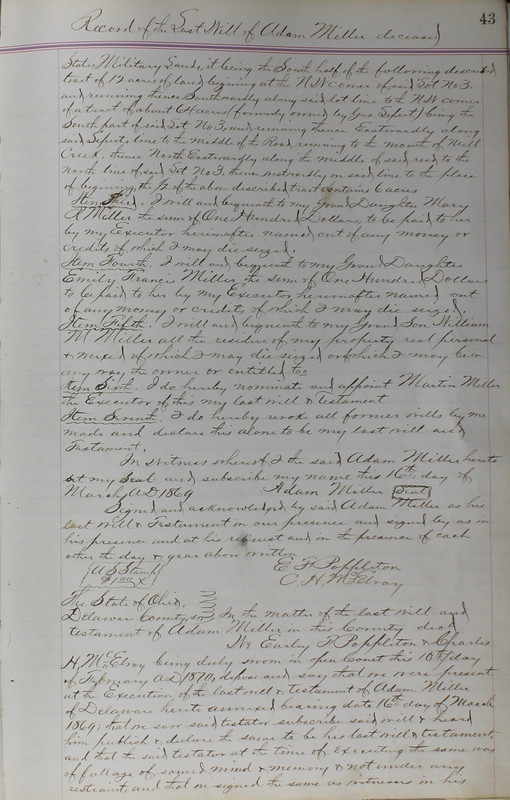 43
Record of the Last Will of Adam Miller deceased
States Military Lands, it being the South half of the following described
tract of 12 acres of land, begining at the N.W. corner of said Lot No 3.
and running thence Southwardly along said lot line to the N.W. corner
of a tract of about 64 acres (formerly owned by Geo Sefert) being the
South part of said Lot No 3, and running thence Eastwardly along
said Seferts line to the middle of the Road running to the mouth of Mill
Creek, thence North Eastwardly along the middle of said road to the
North line of said Lot No 3. thence westwardly on said line to the place
of begining, the ½ of the above described tract contains 6 acres
Item Third. I will and bequeath to my Grand Daughter Mary
R Miller the sum of One Hundred Dollars, to be paid to her
by my Executor hereinafter named, out of any money or
credits of which I may die seized.
Item Fourth. I will and bequeath to my Grand Daughter
Emily Francis Miller, the sum of One Hundred Dollars
to be paid to her by my Executor hereinafter named out
of any money or credits of which I may die seized.
Item Fifth. I will and bequeath to my Grand Son William
M Miller all the residue of my property real personal
& mixed of which I may die seized or of which I may be in
any way the owner or entitled too
Item Sixth. I do hereby nominate and appoint Martin Miller
the Executor of this my last will & testament
Item Seventh. I do hereby revoke all former wills by me
made and declare this alone to be my last will and
Testament.
In witness whereof I the said Adam Miller hereto
set my Seal and subscribe my name this 16th day of
March, A.D. 1869 Adam Miller Seal
Signed and acknowledged by said Adam Miller as his
last will & Testament in our presence and signed by us in
his presence and at his request and in the presence of each
other the day & year above written
U S Stamp E F Poppleton
$1.00 X C. H. McElroy
The State of Ohio,
Delaware County, ss In the matter of the last will and
testament of Adam Miller in this County decd
We Early F Poppleton & Charles
H. McElroy being duly sworn in open Court this 10th day
of February A.D. 1870, depose and say that we were present
at the Execution of the last will & testament of Adam Miller
of Delaware hereto annexed bearing date 16th day of March
1869; that we saw said testator subscribe said will & heard
him publish & declare the same to be his last will & testament,
and that the said testator at the time of executing the same was
of full age of sound mind & memory & not under any
restraint, and that we signed the same as witnesses in his